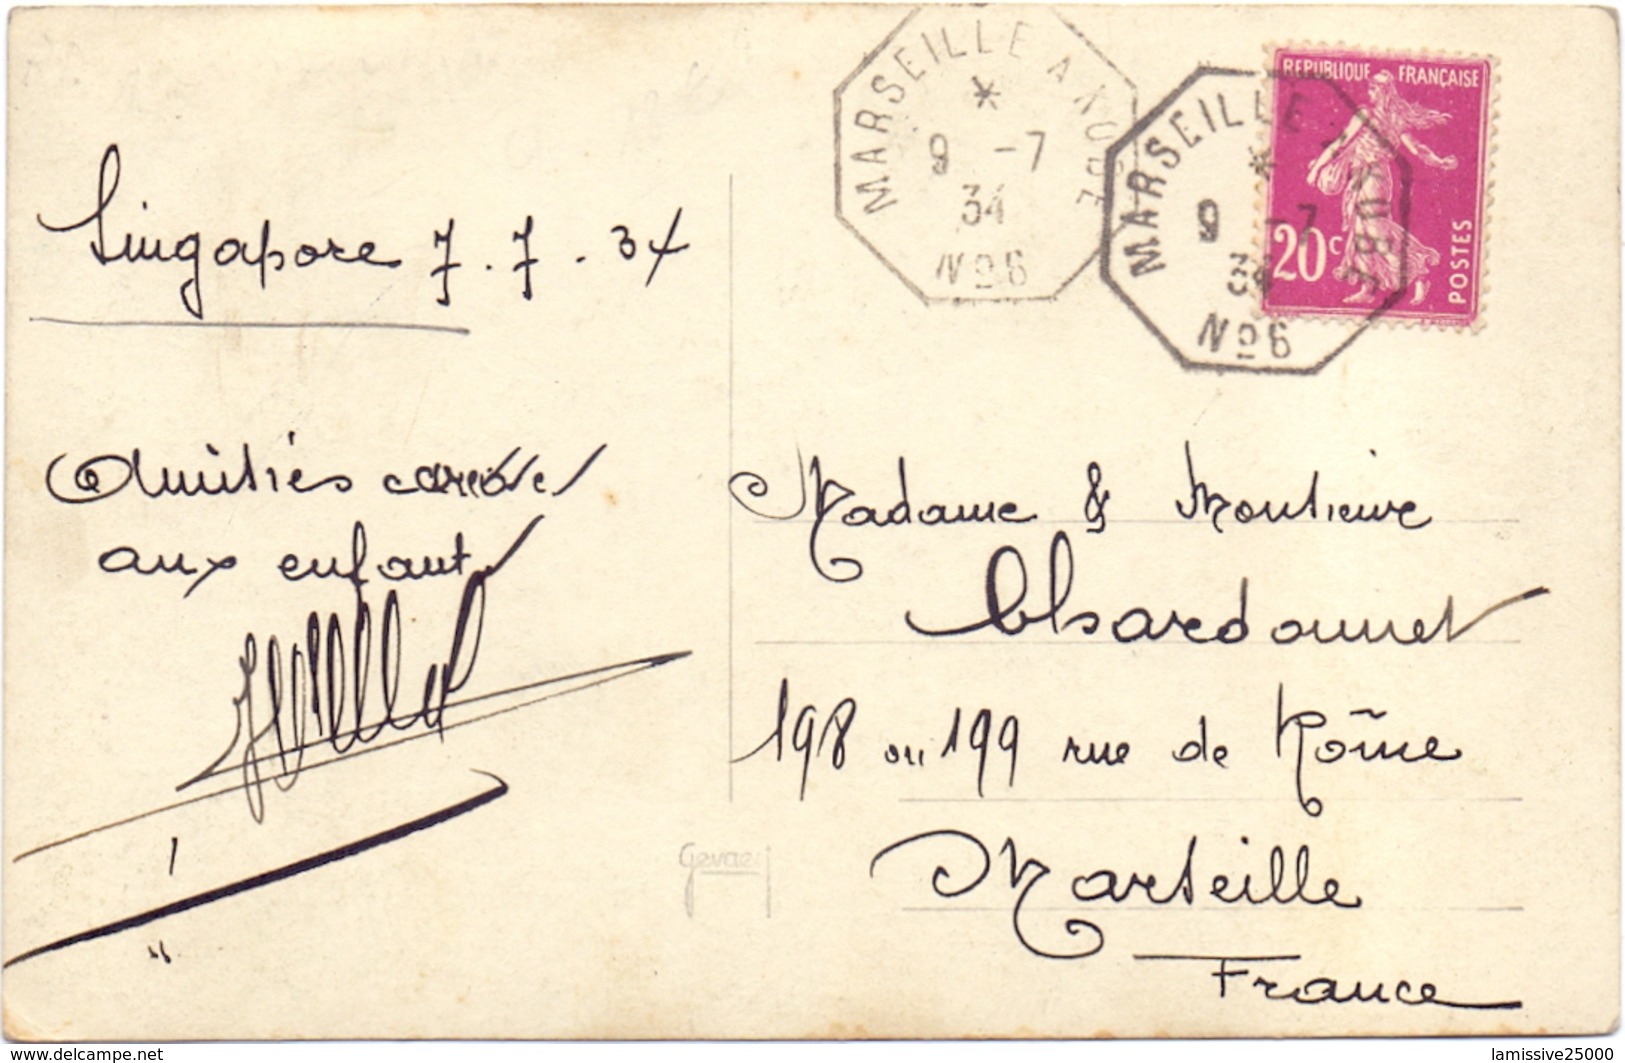 MARSEILLE A KOBE
*
9 -7
34
No 6
MARSEILLE A KOBE
*
9 -7
34
No 6
REPUBLIQUE FRANÇAISE
20c
POSTES
Singapore 7.7.34
Amitiés
aux enfants
Madame & Monsieur
Chardonnet
198 ou 199 rue de Rome
Marseille
France
Gevaert
www.delcampe.net
lamissive25000